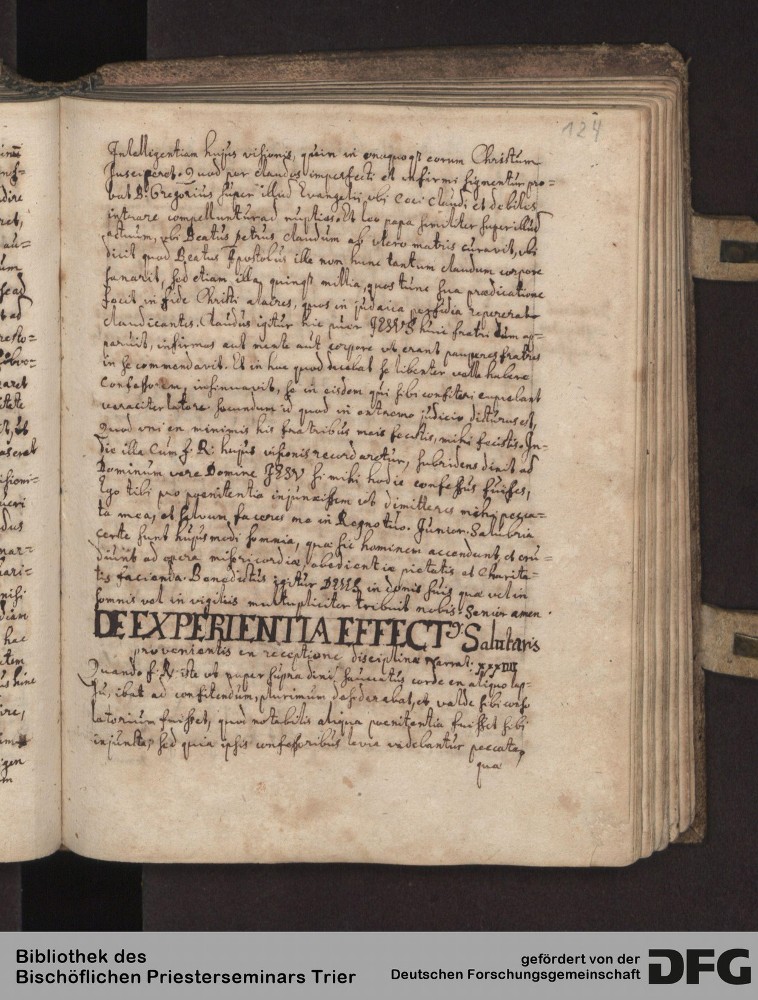 124
Intelligentiam hujus visionis, quin in unoquoqz eorum Christum
susciperet. Quod per claudos imperfecti et infirmi signentur pro=
bat B. Gregorius super illud Evangelii ubi Ceci Claudi et debiles
intrare compelluntur ad nuptias. Et leo papa similiter super illud
actuum, ubi Beatus petrus claudum ab utero matris curavit, ubi
dicit quod Beatus Apostolus ille non hunc tantum claudum corpore
sanavit, sed etiam illa quinqz millia, quos tunc sua prædicatione
fecit in fide Christi alacres, quos in judaica perfidia repererat
claudicantes. Claudus igitur hic puer IESUS huic fratri dum ap=
paruit, infirmos aut mente aut corpore ut erant pauperes fratres
in se commendavit. Et in hoc quod dicebat se libenter velle habere
Confessorem, insinuavit, se in eisdem qui sibi confiteri cupiebant
veraciter latere secundum id quod in extremo judicio dicturus est,
Quod uni ex minimis his fratribus meis fecistis, mihi fecistis. In=
die illa Cum f. R. hujus visionis recordaretur, subridens dixit ad
Dominum vere Domine IESU si mihi hodie confessus fuisses,
Ego tibi pro poenitentia injunxissem ut dimitteres mihi pecca=
ta mea, et salvum faceres me in Regno tuo. Junior. Salubria
certe sunt hujusmodi somnia, quæ sic hominem accendunt, et eru=
diunt ad opera misericordiæ, obedientiæ pietatis et Charita=
tis facienda. Benedictus igitur DEUS in donis suis quæ vel in
somnis vel in vigiliis multipliciter tribuit nobis. Senior amen.
DE EXPERIENTIA EFFECTꝰ Salutaris
provenientis ex receptione disciplinæ Narrat: XXXIIII
Quando f. R. iste ut nuper supra dixi sauciatus corde ex aliquo
ibat ad confitendum, plurimum desiderabat, et valde sibi conso
latorium fuisset, quod notabilis aliqua poenitentia fuisset sibi
injuncta, sed quia ipsis confessoribus levia videbantur peccata,
quæ
Bibliothek des
Bischöflichen Priesterseminars Trier
gefördert von der
Deutschen Forschungsgemeinschaft
DFG